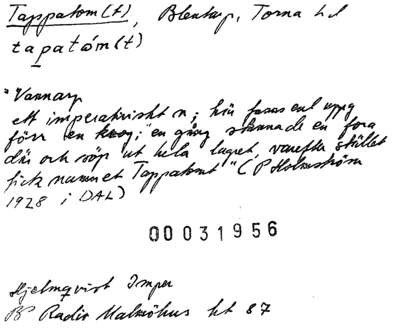 Tappatom(t), Blentarp, Torna hd
tapatóm(t)
"Vannarp
ett imperativiskt n; här fanns enl uppg
förr en krog; "en gång stannade en fora
där och söp ut hela lagret, varefter stället
fick namnet Tappatomt" (P Holmström
1928 i DAL)
00031956
Hjelmqvist Imper
BP Radix Malmöhus ht 87